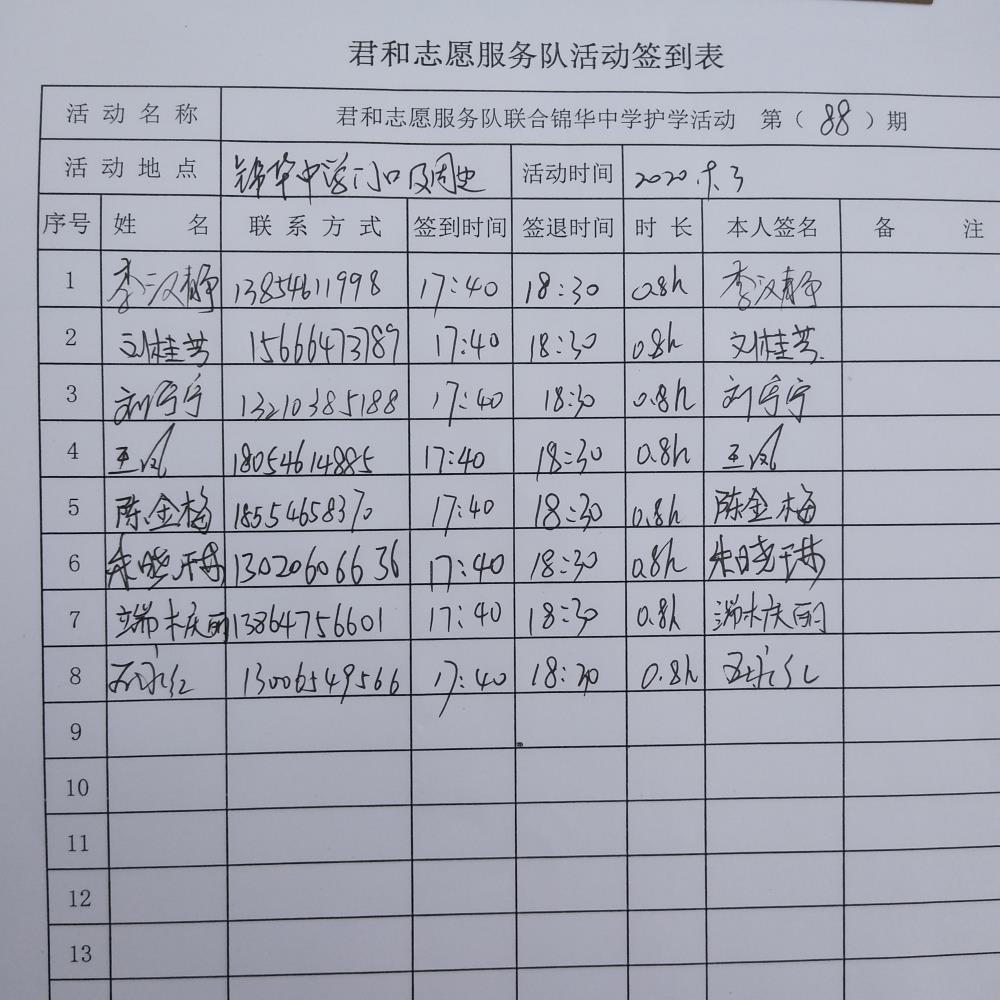 君和志愿服务队活动签到表
活动名称 君和志愿服务队联合锦华中学护学活动 第（88）期
活动地点 锦华中学门口及周边 活动时间 2020.9.3
序号 姓名 联系方式 签到时间 签退时间 时长 本人签名 备注
1 李汉静 13854611998 17:40 18:30 0.8h 李汉静
2 刘桂芳 15666473789 17:40 18:30 0.8h 刘桂芳
3 刘宁宁 13210385188 17:40 18:30 0.8h 刘宁宁
4 王凤 18054614885 17:40 18:30 0.8h 王凤
5 陈金梅 18554658370 17:40 18:30 0.8h 陈金梅
6 朱晓 13020606636 17:40 18:30 0.8h 朱晓
7 端木庆丽 13864756601 17:40 18:30 0.8h 端木庆丽
8 永红 13006549566 17:40 18:30 0.8h 永红
9
10
11
12
13